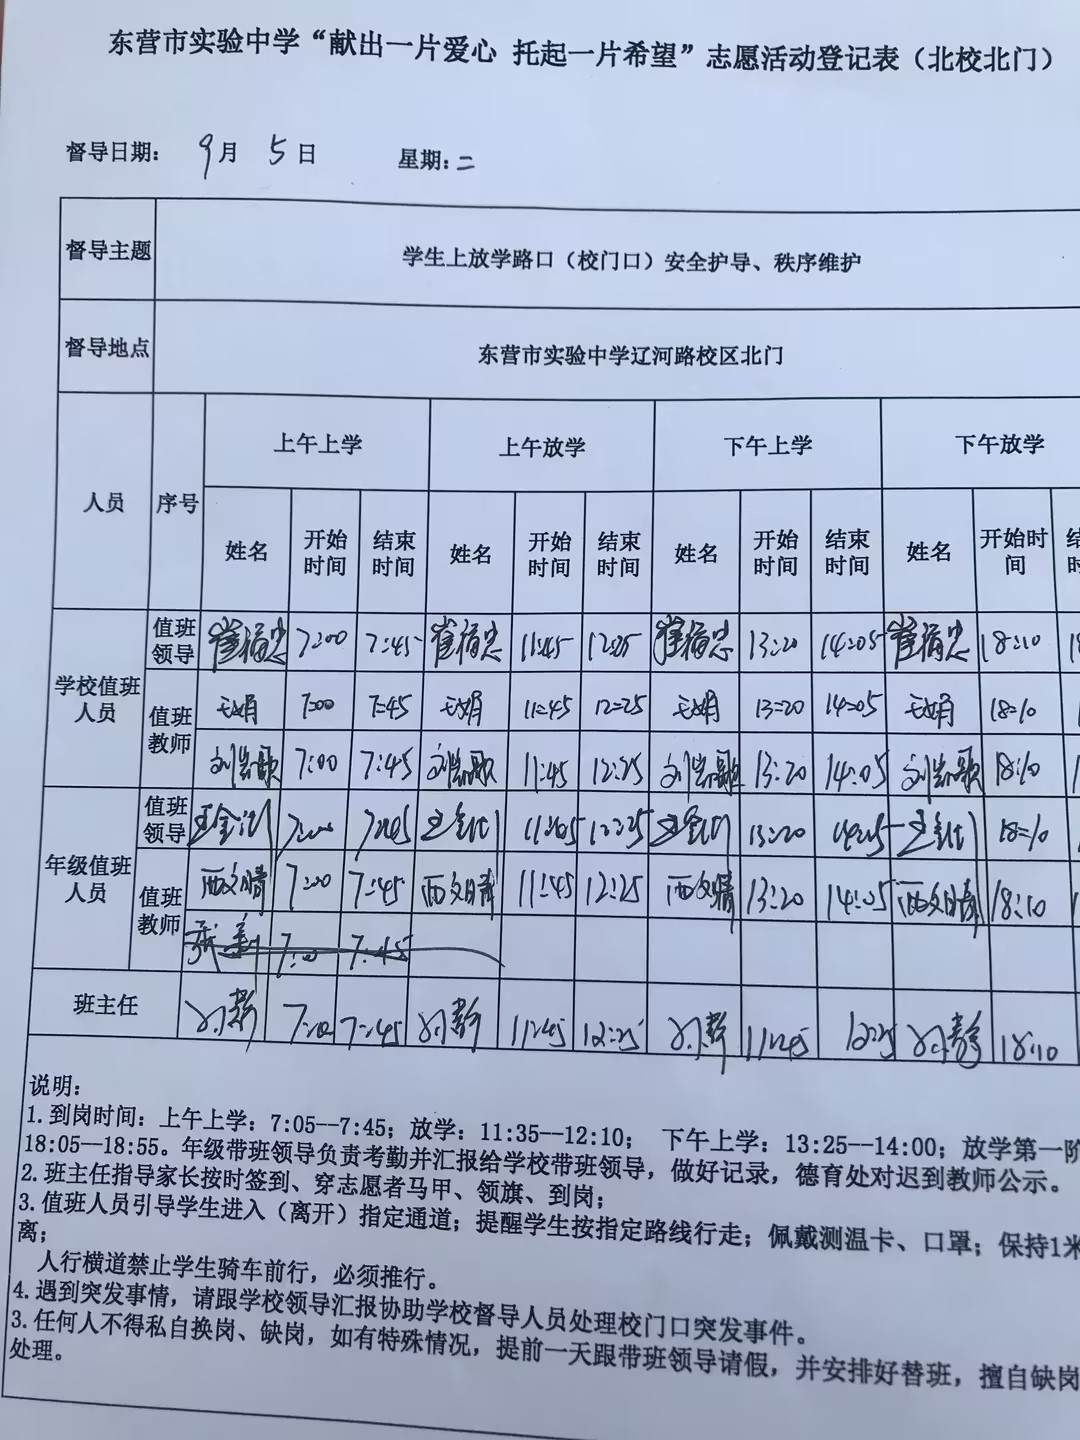 东营市实验中学“献出一片爱心 托起一片希望”志愿活动登记表（北校北门）
督导日期： 9月 5日 星期：二
督导主题 学生上放学路口（校门口）安全护导、秩序维护
督导地点 东营市实验中学辽河路校区北门
人员 序号 上午上学 上午放学 下午上学 下午放学
姓名 开始时间 结束时间 姓名 开始时间 结束时间 姓名 开始时间 结束时间 姓名 开始时间
学校值班人员 值班领导 崔福忠 7:00 7:45 崔福忠 11:45 12:25 崔福忠 13:20 14:05 崔福忠 18:10
值班教师 王娟 7:00 7:45 王娟 11:45 12:25 王娟 13:20 14:05 王娟 18:10
刘 歌 7:00 7:45 刘 歌 11:45 12:25 刘 歌 13:20 14:05 刘 歌 18:10
年级值班人员 值班领导 王金 7:00 7:45 王金 11:45 12:25 王金 13:20 14:05 王金 18:10
值班教师 西文晴 7:00 7:45 西文晴 11:45 12:25 西文晴 13:20 14:05 西文晴 18:10
7:00 7:45
班主任 刘静 7:00 7:45 刘静 11:45 12:25 刘静 11:45 12:25 刘静 18:10
说明：
1.到岗时间：上午上学：7:05--7:45；放学：11:35--12:10； 下午上学：13:25--14:00；放学第一阶
18:05--18:55。年级带班领导负责考勤并汇报给学校带班领导，做好记录，德育处对迟到教师公示。
2.班主任指导家长按时签到、穿志愿者马甲、领旗、到岗；
3.值班人员引导学生进入（离开）指定通道；提醒学生按指定路线行走；佩戴测温卡、口罩；保持1米
离；
人行横道禁止学生骑车前行，必须推行。
4.遇到突发事情，请跟学校领导汇报协助学校督导人员处理校门口突发事件。
3.任何人不得私自换岗、缺岗，如有特殊情况，提前一天跟带班领导请假，并安排好替班，擅自缺岗
处理。